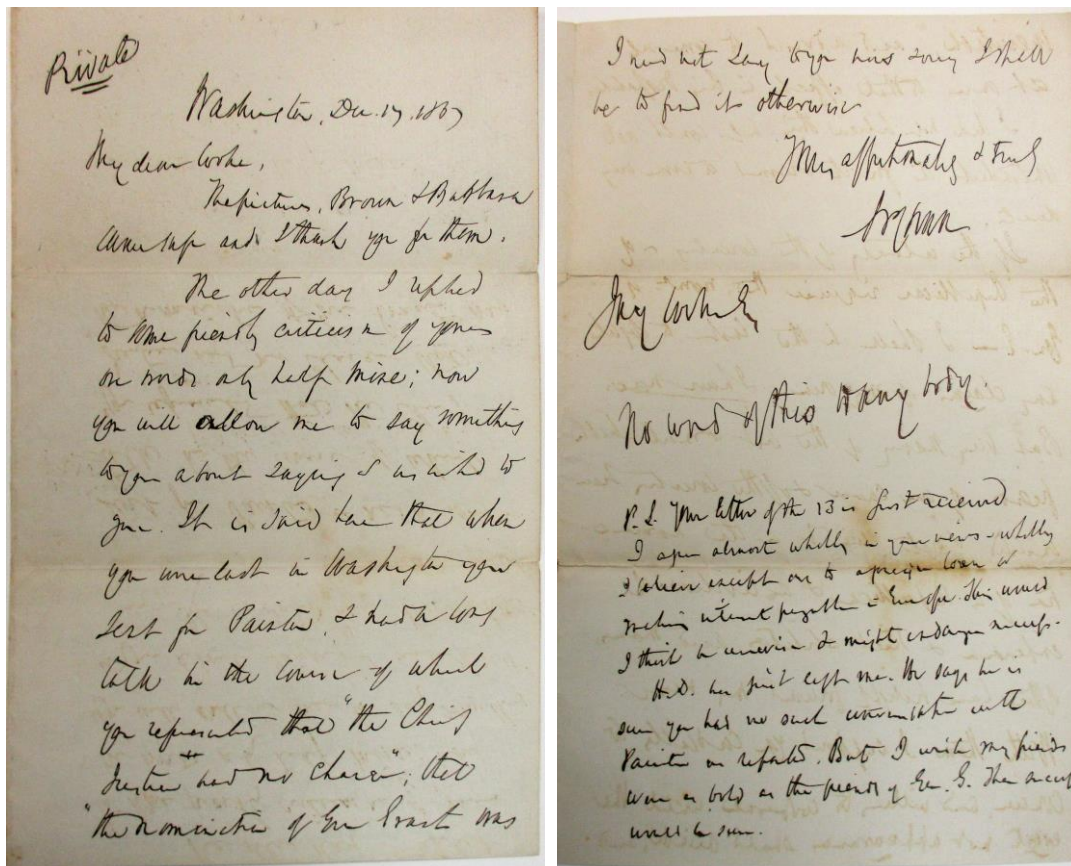 Private
Washington, Dec. 17, 1867
My dear Cooke,
The pictures, Brown & Barbara
came safe and I thank you for them.
The other day I replied
to some friendly criticism of yours
on words only half mine; now
you will allow me to say something
to you about sayings ascribed to
you. It is said here that when
you were last in Washington you
sent for Painter, & had a long
talk in the course of which
you represented that "the Chief
Justice had no chance"; that
"the nomination of Gen Grant was
I need not say to you how sorry I shall
be to find it otherwise
Yours affectionately & truly
S P Chase
Jay Cooke Esq
No word of this to any body.
P.S. Your letter of the 13 is just received
I agree almost wholly in your views - wholly
I believe except as to a foreign loan or
making interest payable in Europe. This would
I think be unwise & might endanger success.
H.D. has just left me. He says he is
sure you had no such conversation with
Painter as reported. But I wish my friends
were as bold as the friends of Gen. G. Then success
would be sure.